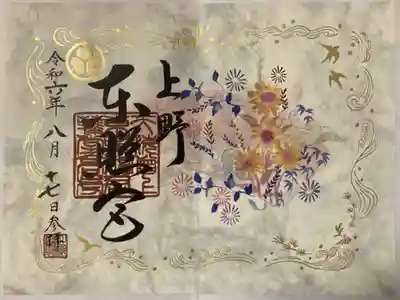 上野
東照宮
令和六年
八月
十七日参拝